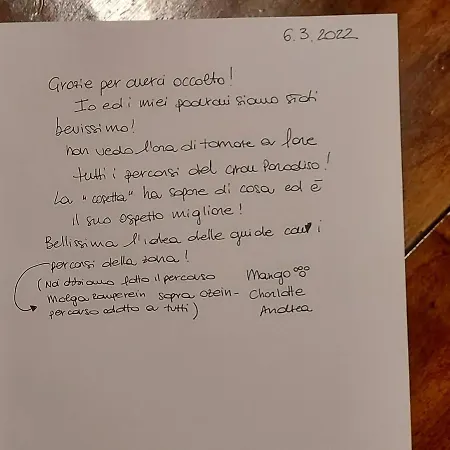 6.3.2022
Grazie per averci accolto!
Io ed i miei padroni siamo stati
benissimo!
Non vedo l'ora di tornare a fare
tutti i percorsi del Gran Paradiso!
La "casetta" ha sapore di casa ed è
il suo aspetto migliore!
Bellissima l'idea delle guide con i
percorsi della zona!
(Noi abbiamo fatto il percorso
Malga sopra Ozein -
percorso adatto a tutti)
Mango
Charlotte
Andrea